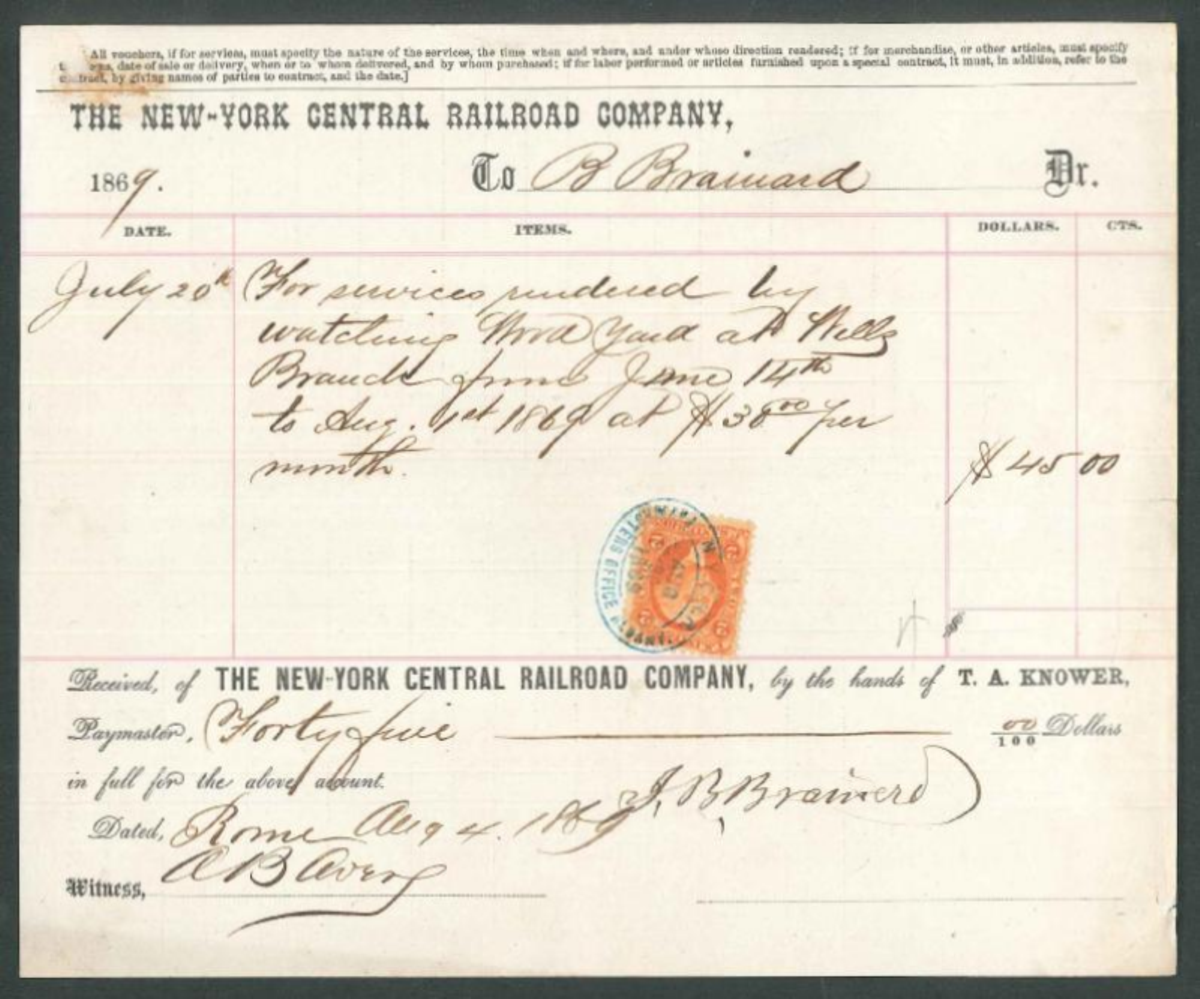 All vouchers, if for services, must specify the nature of the services, the time when and where, and under whose direction rendered; if for merchandise, or other articles, must specify
date of sale or delivery, when or to whom delivered, and by whom purchased; if for labor performed or articles furnished upon a special contract, it must, in addition, refer to the
contract, by giving names of parties to contract, and the date.]
THE NEW-YORK CENTRAL RAILROAD COMPANY,
1869. To B Brainard Dr.
DATE. ITEMS. DOLLARS. CTS.
July 20th For services rendered by
watching Wood Yard at Wells
Branch from June 14th
to Aug. 1st 1869 at $30 00 per
month. $45 00
PAYMASTERS OFFICE
Received, of THE NEW-YORK CENTRAL RAILROAD COMPANY, by the hands of T. A. KNOWER,
Paymaster, Forty five 00/100 Dollars
in full for the above account.
J. B. Brainerd
Dated, Rome Aug 4. 1869
Witness, A B Avery